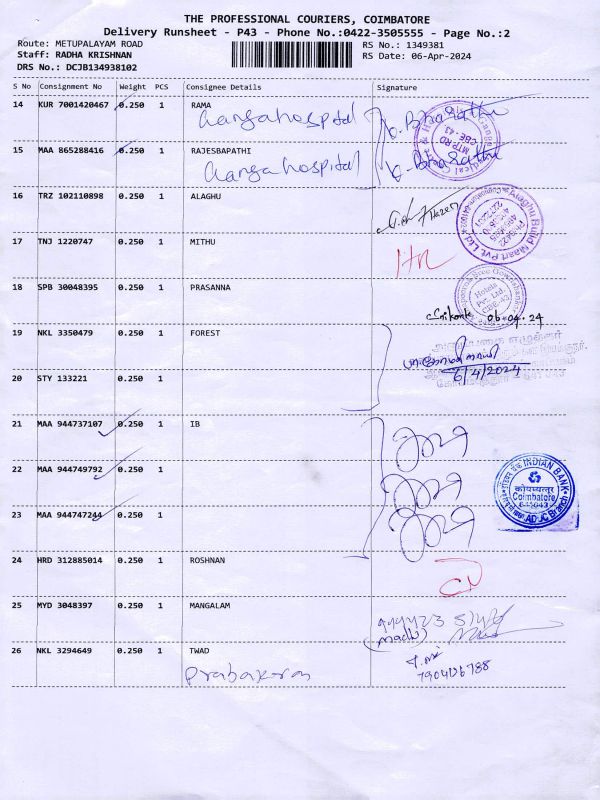 THE PROFESSIONAL COURIERS, COIMBATORE
Delivery Runsheet - P43 - Phone No.:0422-3505555 - Page No.:2
Route: METUPALAYAM ROAD RS No.: 1349381
Staff: RADHA KRISHNAN RS Date: 06-Apr-2024
DRS No.: DCJB134938102
S No Consignment No Weight PCS Consignee Details Signature
14 KUR 7001420467 0.250 1 RAMA
Ganga hospital
15 MAA 865288416 0.250 1 RAJESBAPATHI
Ganga hospital
16 TRZ 102110898 0.250 1 ALAGHU
17 TNJ 1220747 0.250 1 MITHU
18 SPB 30048395 0.250 1 PRASANNA
06-04-24
19 NKL 3350479 0.250 1 FOREST
6/4/2024
20 STY 133221 0.250 1
21 MAA 944737107 0.250 1 IB
22 MAA 944749792 0.250 1
INDIAN BANK
कोयम्बत्तूर
Coimbatore
23 MAA 944747244 0.250 1
24 HRD 312885014 0.250 1 ROSHNAN
25 MYD 3048397 0.250 1 MANGALAM
(madhu)
26 NKL 3294649 0.250 1 TWAD
Prabakaran